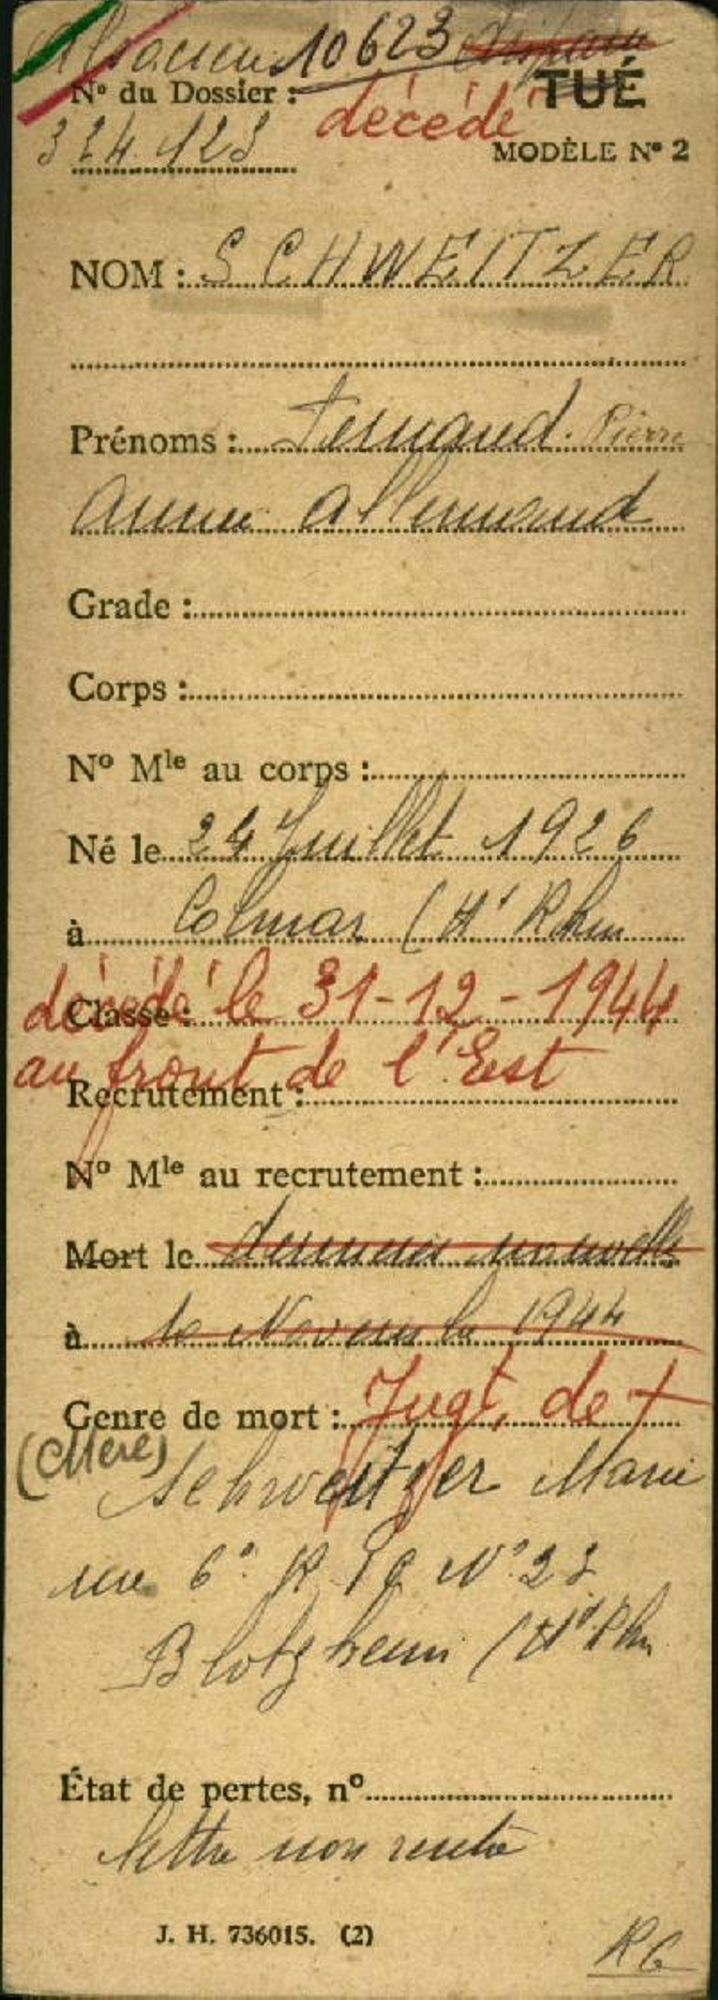 Alsacien 10623 disparu
N° du Dossier : décédé TUÉ
324.123
MODÈLE N° 2
NOM : SCHWEITZER
Prénoms : Fernand. Pierre
Armée Allemande
Grade :
Corps :
N° Mle au corps :
Né le 24 Juillet 1926
à Colmar (Ht Rhin
décédé le 31-12-1944
Classe :
au front de l'Est
Recrutement :
N° Mle au recrutement :
Mort le dernières nouvelles
à 10 Novembre 1944
Genre de mort : Jugt. de +
(Mère)
Schweitzer Marie
rue 6°
Blotzheim (Ht Rhin
État de pertes, n°
lettre non rentré
J. H. 736015. (2)
RG